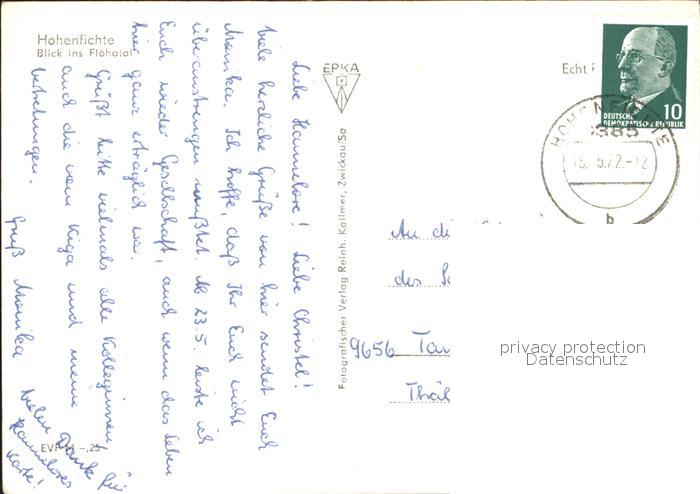 Hohenfichte
Blick ins Flöhatal
Liebe Hannelore! Liebe Christel!
Viele herzliche Grüße von hier sendet Euch
Monika. Ich hoffe, daß Ihr Euch nicht
überanstrengen mußtet. Ab 23.5. leiste ich
Euch wieder Gesellschaft, auch wenn das Leben
hier ganz erträglich war.
Grüßt bitte vielmals alle Kolleginnen,
auch die vom Kiga und meine
Vertretungen.
Gruß Monika
Vielen Dank für
Hannelores
Karte!
EVP M -,25
EPKA
Fotografischer Verlag Reinh. Kallmer, Zwickau/Sa
Echt
DEUTSCHE
DEMOKRATISCHE REPUBLIK
10
HOHENFICHTE
9385
15. 5.72.-12
b
An di
des
9656 Tan
Thäl
privacy protection
Datenschutz